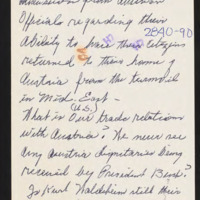 from Austrian
Officials regarding their
2840-90
ability to have their citizens
returned to their home of
Austria from the turmoil
in Mid. East -
(U.S.)
What is our trade relations
with Austria? We never see
any Austria dignitaries being
received by President Bush?
Is Kurt Waldheim still their